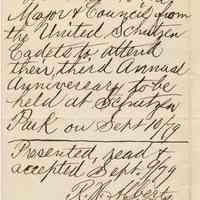 Mayor & Council from
the United Schutzen
Cadets to attend
their third Annual
Anniversary to be
held at Schutzen
Park on Sept 10/79
Presented, read &
accepted Sept. 9/79
R. H. Alberts